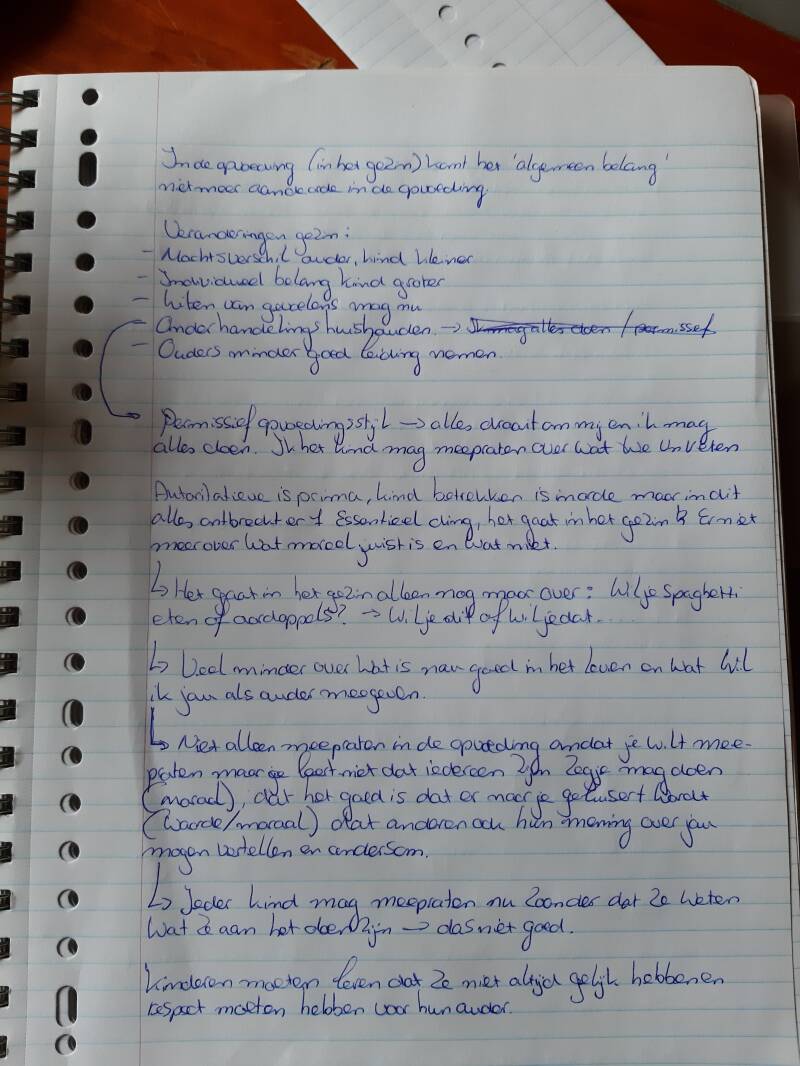 In de opvoeding (in het gezin) komt het 'algemeen belang'
niet meer aan de orde in de opvoeding.
Veranderingen gezin:
- Machtsverschil ouder, kind kleiner
- Individueel belang kind groter
- Uiten van gevoelens mag nu
- Onderhandelingshuishouden → Ik mag alles doen / permissief
- Ouders minder goed leiding nemen.
Permissief opvoedingsstijl → alles draait om mij en ik mag
alles doen. Ik het kind mag meepraten over wat we
Autoritatieve is prima, kind betrekken is inorde maar in dit
alles ontbreekt er 1 Essentieel ding, het gaat in het gezin Er niet
meer over wat moreel juist is en wat niet.
↳ Het gaat in het gezin alleen nog maar over: Wil je spaghetti
eten of aardappels? → Wil je dit of wil je dat.....
↳ Veel minder over wat is nou goed in het leven en wat wil
ik jou als ouder meegeven.
↳ Niet alleen meepraten in de opvoeding omdat je wilt mee-
praten maar je leert niet dat iedereen zijn zegje mag doen
(moraal), dat het goed is dat er naar je geluisert wordt
(waarde/moraal) dat anderen ook hun mening over jou
mogen vertellen en andersom.
↳ Ieder kind mag meepraten nu zoonder dat ze weten
wat ze aan het doen zijn → das niet goed.
Kinderen moeten leren dat ze niet altijd gelijk hebben en
respect moeten hebben voor hun ouder.